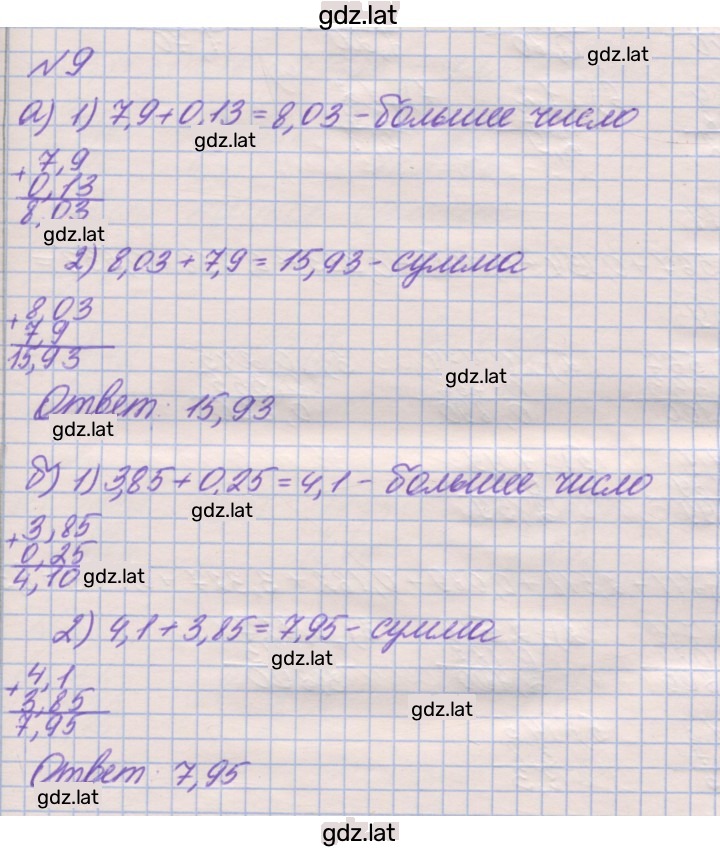 gdz.lat
gdz.lat
№ 9
а) 1) 7,9 + 0,13 = 8,03 - большее число
gdz.lat
+ 7,9
0,13
8,03
gdz.lat
2) 8,03 + 7,9 = 15,93 - сумма
+ 8,03
7,9
15,93
gdz.lat
Ответ: 15,93
gdz.lat
б) 1) 3,85 + 0,25 = 4,1 - большее число
gdz.lat
+ 3,85
0,25
4,10
gdz.lat
2) 4,1 + 3,85 = 7,95 - сумма
gdz.lat
+ 4,1
3,85
7,95
gdz.lat
Ответ: 7,95
gdz.lat
gdz.lat